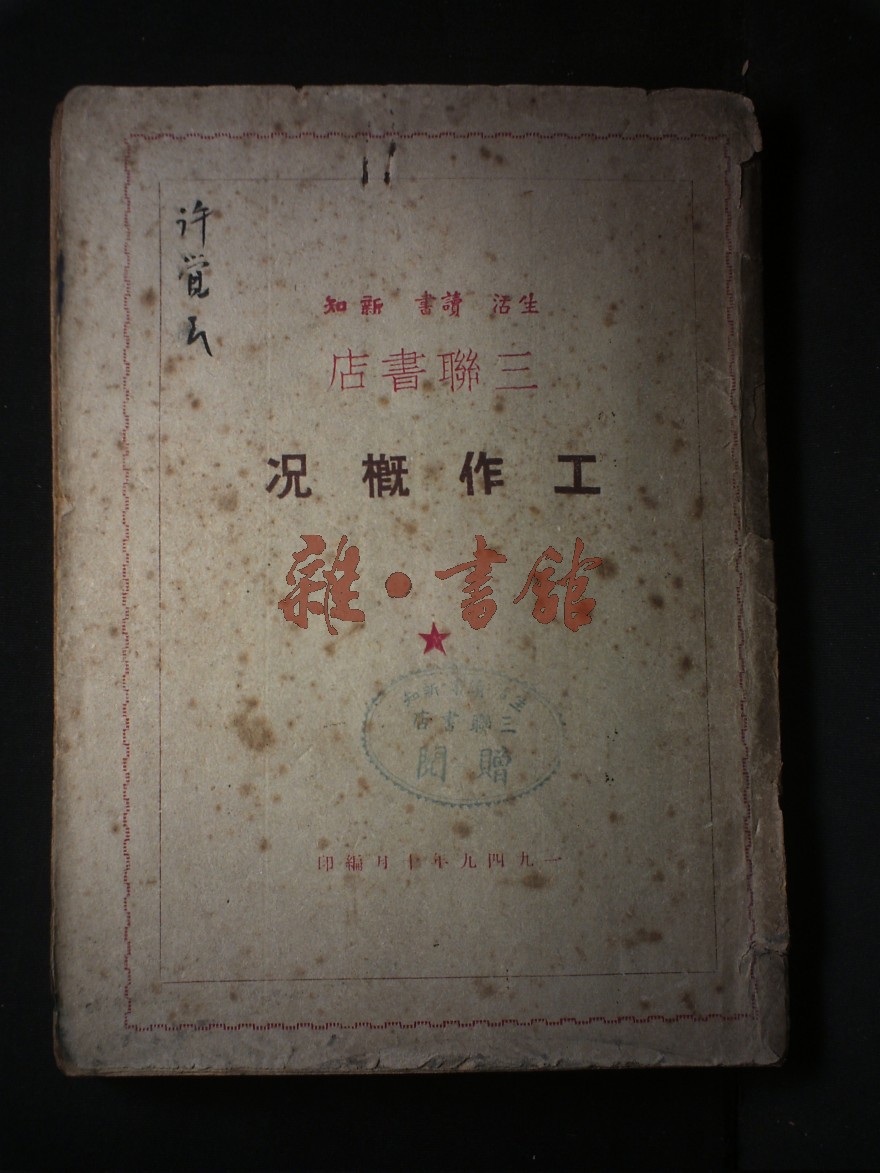 许觉民
生活 讀書 新知
三聯書店
工作概况
雜·書館
生活讀書新知
三聯書店
贈閱
一九四九年十月編印